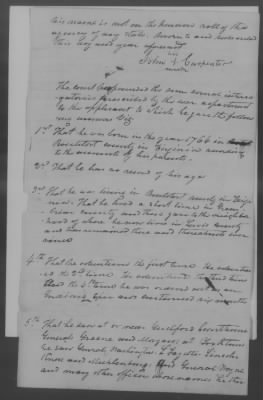 his name is not on the pension roll of the
agency of any state. Sworn to and subscribed
the day and year aforesaid
John Carpenter
The court propounded the seven several interro
gatories prescribed by the war department
to the applicant to which he gave the follow
ing answers Viz
1st That he was born in the year 1756 in
County in Virginia according
to the accounts of his parents.
2nd That he has no record of his age
3rd That he was living in County in Virgi
nia. That he lived a short time in Green
brier County and then came to the neighbor
hood of where he now lives in Lewis County
and has remained there and thereabouts ever
since
4th That he volunteered the first time. He volunteer
ed the 2nd time. He volunteered the third time
the time he was
and continued six months
5th That he saw at or near Guilford Courthouse
Generals Greene and Morgan; at York town
he saw General Washington, La Fayette, Lincoln
and Muhlenberg, and General Wayne
and many other officers whose names he